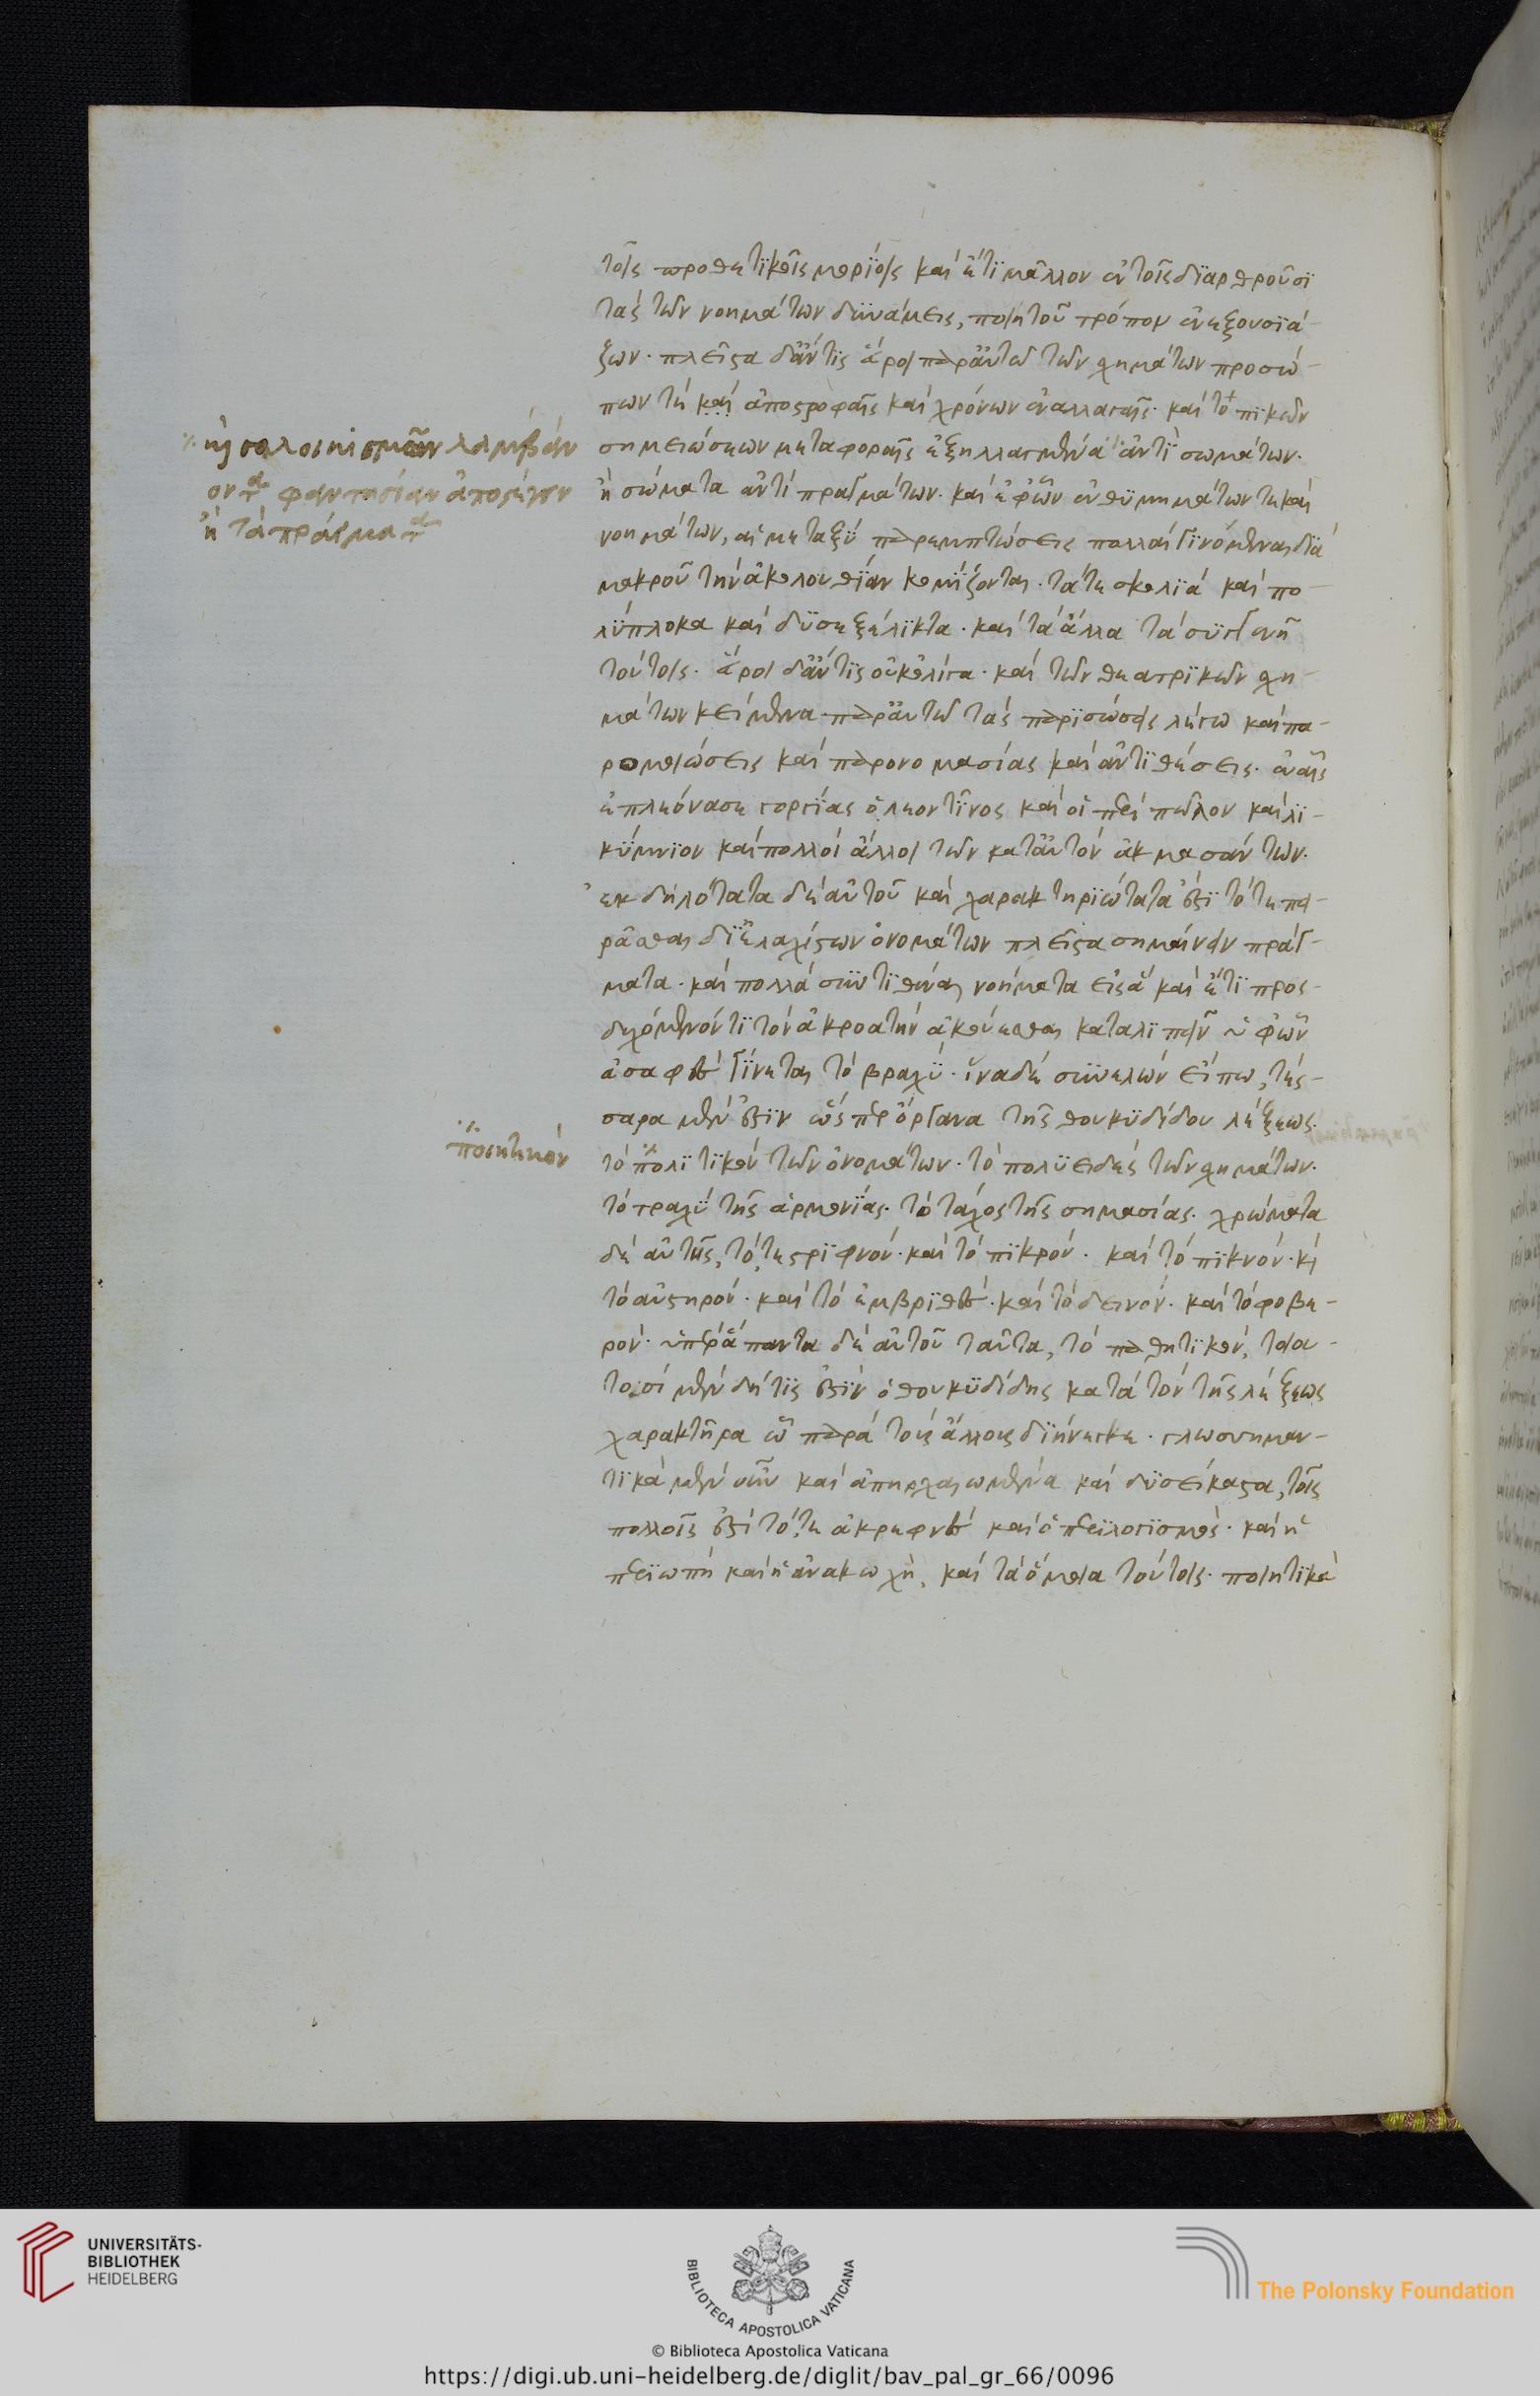 τοῖς προθετικοῖς μορίοις καὶ ἔτι μᾶλλον ἐν τοῖς διαρθροῦσι
τὰς τῶν νοημάτων δυνάμεις, ποιητοῦ τρόπον ἐνεξουσιά-
ζων. πλεῖστα δ' ἄν τις εὕροι παρ' αὐτῶ τῶν σχημάτων προσώ-
πων τὲ καὶ ἀποστροφαῖς καὶ χρόνων ἐναλλαγαῖς. καὶ τοπικῶν
σημειώσεων μεταφοραῖς ἐξηλλαγμένα ἀντὶ σωμάτων.
ἢ σώματα ἀντὶ πραγμάτων. καὶ ἐφ' ὧν ἐνθυμημάτων τε καὶ
νοημάτων, αἱ μεταξὺ παρεμπτώσεις πολλαὶ γινόμεναι διὰ
μακροῦ τὴν ἀκολουθίαν κομίζονται. τά τε σκολιὰ καὶ πο-
λύπλοκα καὶ δυσεξέλικτα. καὶ τὰ ἄλλα τὰ συγγενῆ
τούτοις. εὕροι δ' ἄν τις οὐκ ὀλίγα. καὶ τῶν θεατρικῶν σχη-
μάτων κείμενα παρ' αὐτῶ τὰς παρισώσεις λέγω καὶ πα-
ρομοιώσεις καὶ παρονομασίας καὶ ἀντιθέσεις. ἐν αἷς
ἐπλεόνασε γοργίας ὁ λεοντῖνος καὶ οἱ περὶ πῶλον καὶ λι-
κύμνιον καὶ πολλοὶ ἄλλοι τῶν κατ' αὐτὸν ἀκμασάντων.
ἐκδηλότατα δὲ αὐτοῦ καὶ χαρακτηριώτατα ἐστὶ τό τε πει-
ρᾶσθαι δι' ἐλαχίστων ὀνομάτων πλεῖστα σημαίνειν πράγ-
ματα. καὶ πολλὰ συντιθέναι νοήματα εἰς ἓν καὶ ἔτι προσ-
δεχόμενόν τι τὸν ἀκροατὴν ἀκούσεσθαι καταλιπεῖν ὑφ' ὧν
ἀσαφὲς γίνεται τὸ βραχύ. ἵνα δὲ συνελὼν εἴπω, τέσ-
σαρα μέν ἐστιν ὥσπερ ὄργανα τῆς θουκυδίδου λέξεως.
τὸ πολιτικὸν τῶν ὀνομάτων. τὸ πολυειδὲς τῶν σχημάτων.
τὸ τραχὺ τῆς ἁρμονίας. τὸ τάχος τῆς σημασίας. χρώματα
δὲ αὐτῆς, τό τε στριφνόν. καὶ τὸ πικρόν. καὶ τὸ πικνόν. κὶ
τὸ αὐστηρόν. καὶ τὸ ἐμβριθὲς. καὶ τὸ δεινόν. καὶ τὸ φοβε-
ρόν. ὑπὲρ ἅπαντα δὲ αὐτοῦ ταῦτα, τὸ παθητικόν, τοιου-
τοσὶ μὲν δή τις ἐστὶν ὁ θουκυδίδης κατὰ τὸν τῆς λέξεως
χαρακτῆρα ᾧ παρὰ τοὺς ἄλλους διήνεγκε. γλωσσημα-
τικὰ μὲν οὖν καὶ ἀπηρχαιωμένα καὶ δυσείκαστα, τοῖς
πολλοῖς ἐστὶ τό, τε ἀκραιφνὲς καὶ ὁ περιλογισμὸς. καὶ ἡ
περιωπὴ καὶ ἡ ἀνακωχὴ, καὶ τὰ ὅμοια τούτοις. ποιητικὰ
ὡς σολοικισμῶν λαμβάν
οντα φαντασίαν ἀποφέρειν
ἢ τὰ πράγματα
ποιητικόν
UNIVERSITÄTS-
BIBLIOTHEK
HEIDELBERG
BIBLIOTECA APOSTOLICA VATICANA
The Polonsky Foundation
© Biblioteca Apostolica Vaticana
https://digi.ub.uni-heidelberg.de/diglit/bav_pal_gr_66/0096